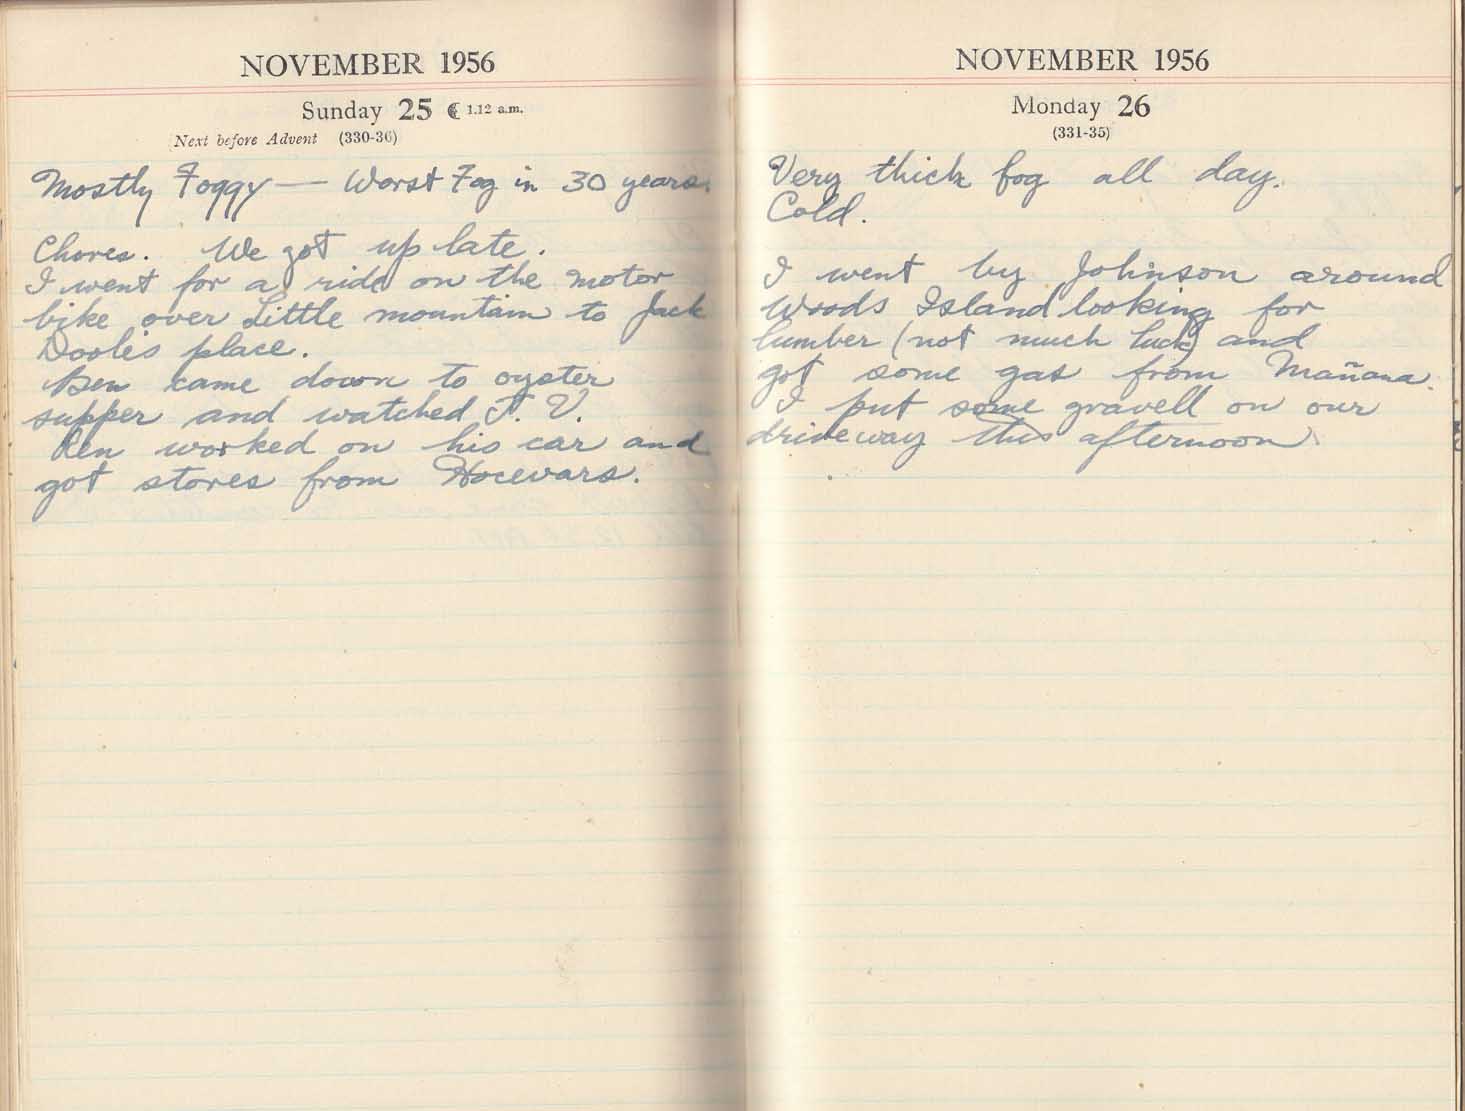 NOVEMBER 1956
Sunday 25 ☾ 1.12 a.m.
Next before Advent (330-36)
Mostly Foggy — Worst Fog in 30 years.
Chores. We got up late.
I went for a ride on the motor
bike over Little mountain to Jack
Doole's place.
Ben came down to oyster
supper and watched T.V.
Len worked on his car and
got stores from Hocevars.
NOVEMBER 1956
Monday 26
(331-35)
Very thick fog all day.
Cold.
I went by Johnson around
Woods Island looking for
lumber (not much luck) and
got some gas from Mañana.
I put some gravell on our
driveway this afternoon.